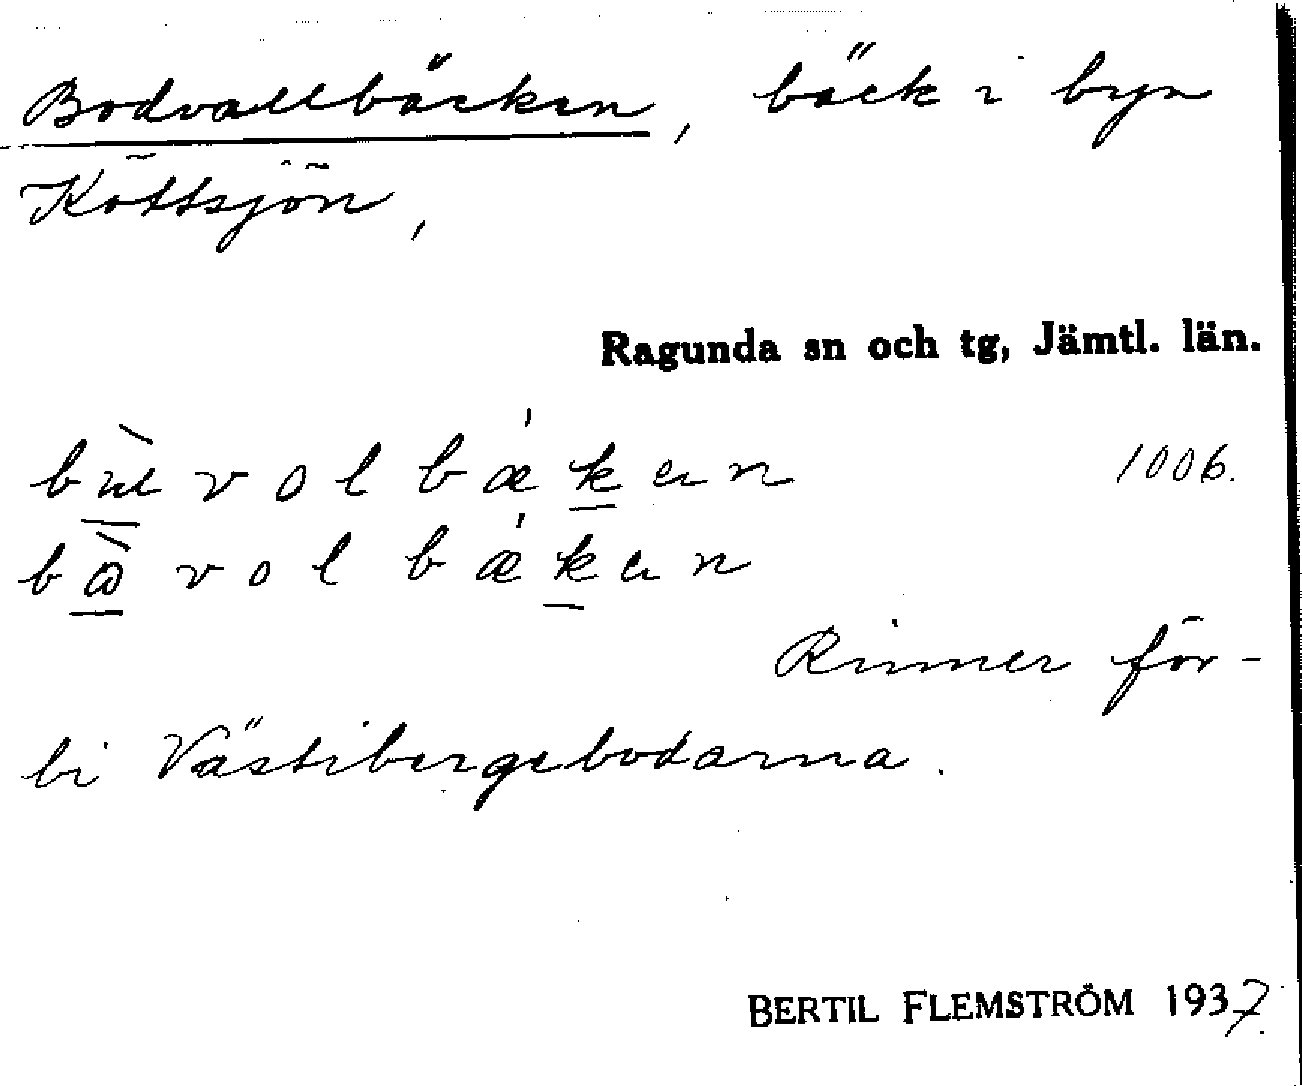 Bodvallbäcken, bäck i byn
Köttsjön,
Ragunda sn och tg, Jämtl. län.
1006.
Rinner för-
bi Västibergebodarna.
BERTIL FLEMSTRÖM 1937.